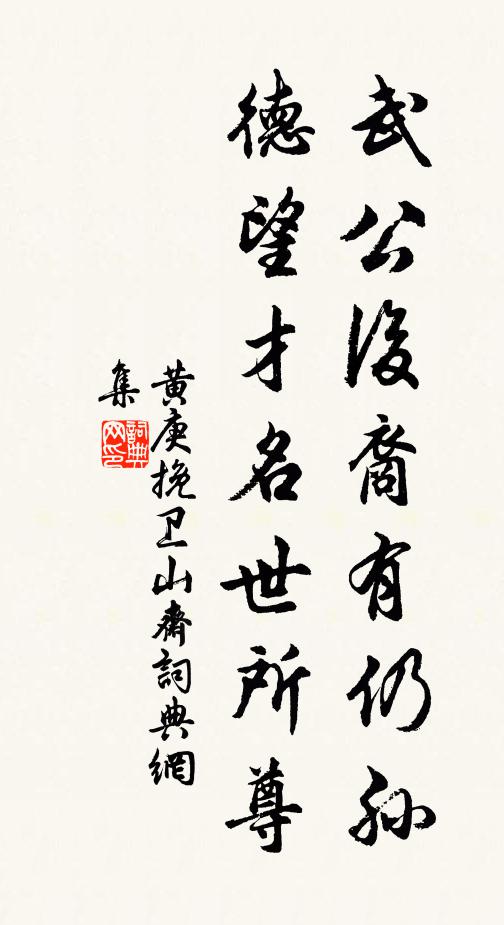 武公後裔有仍孙
德望才名世所尊
黄庚挽卫山齋詞典網
集
詞典网印